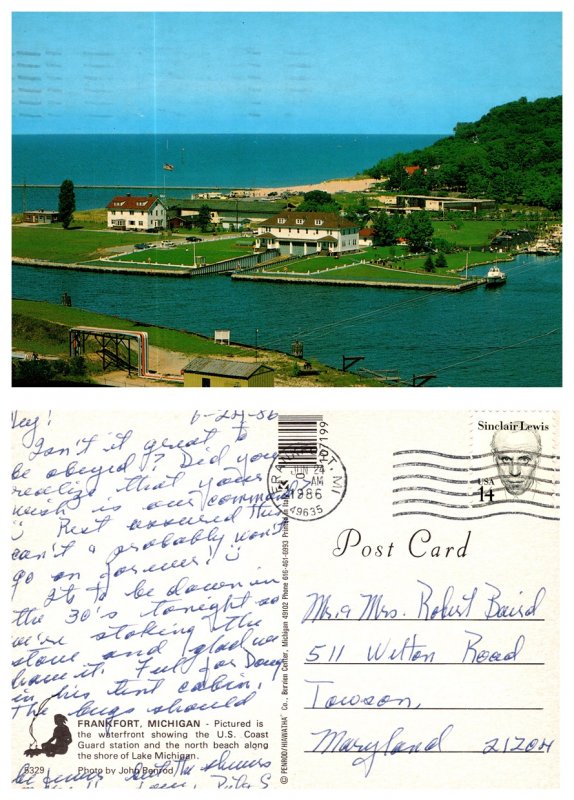 Hey! 6-24-86
Isn't it great to
be obeyed? Did you
realize that your
wish is our command?
Rest assured this
can't & probably won't
go on forever!
It's to be down in
the 30's tonight so
we're stoking the
stove and glad we
have it. Feel for Doug
in his tent cabin.
The bugs should
FRANKFORT, MICHIGAN - Pictured is
the waterfront showing the U.S. Coast
Guard station and the north beach along
the shore of Lake Michigan.
8329 Photo by John Penrod
be
Co., Berrien Center, Michigan 49102 Phone 616-461-6993 Printed in
© PENROD/HIAWATHA
107199
JUN 24
AM
1986
MI
49635
Sinclair Lewis
USA
14
Post Card
Mr. & Mrs. Robert Baird
511 Wilton Road
Towson,
Maryland 21204